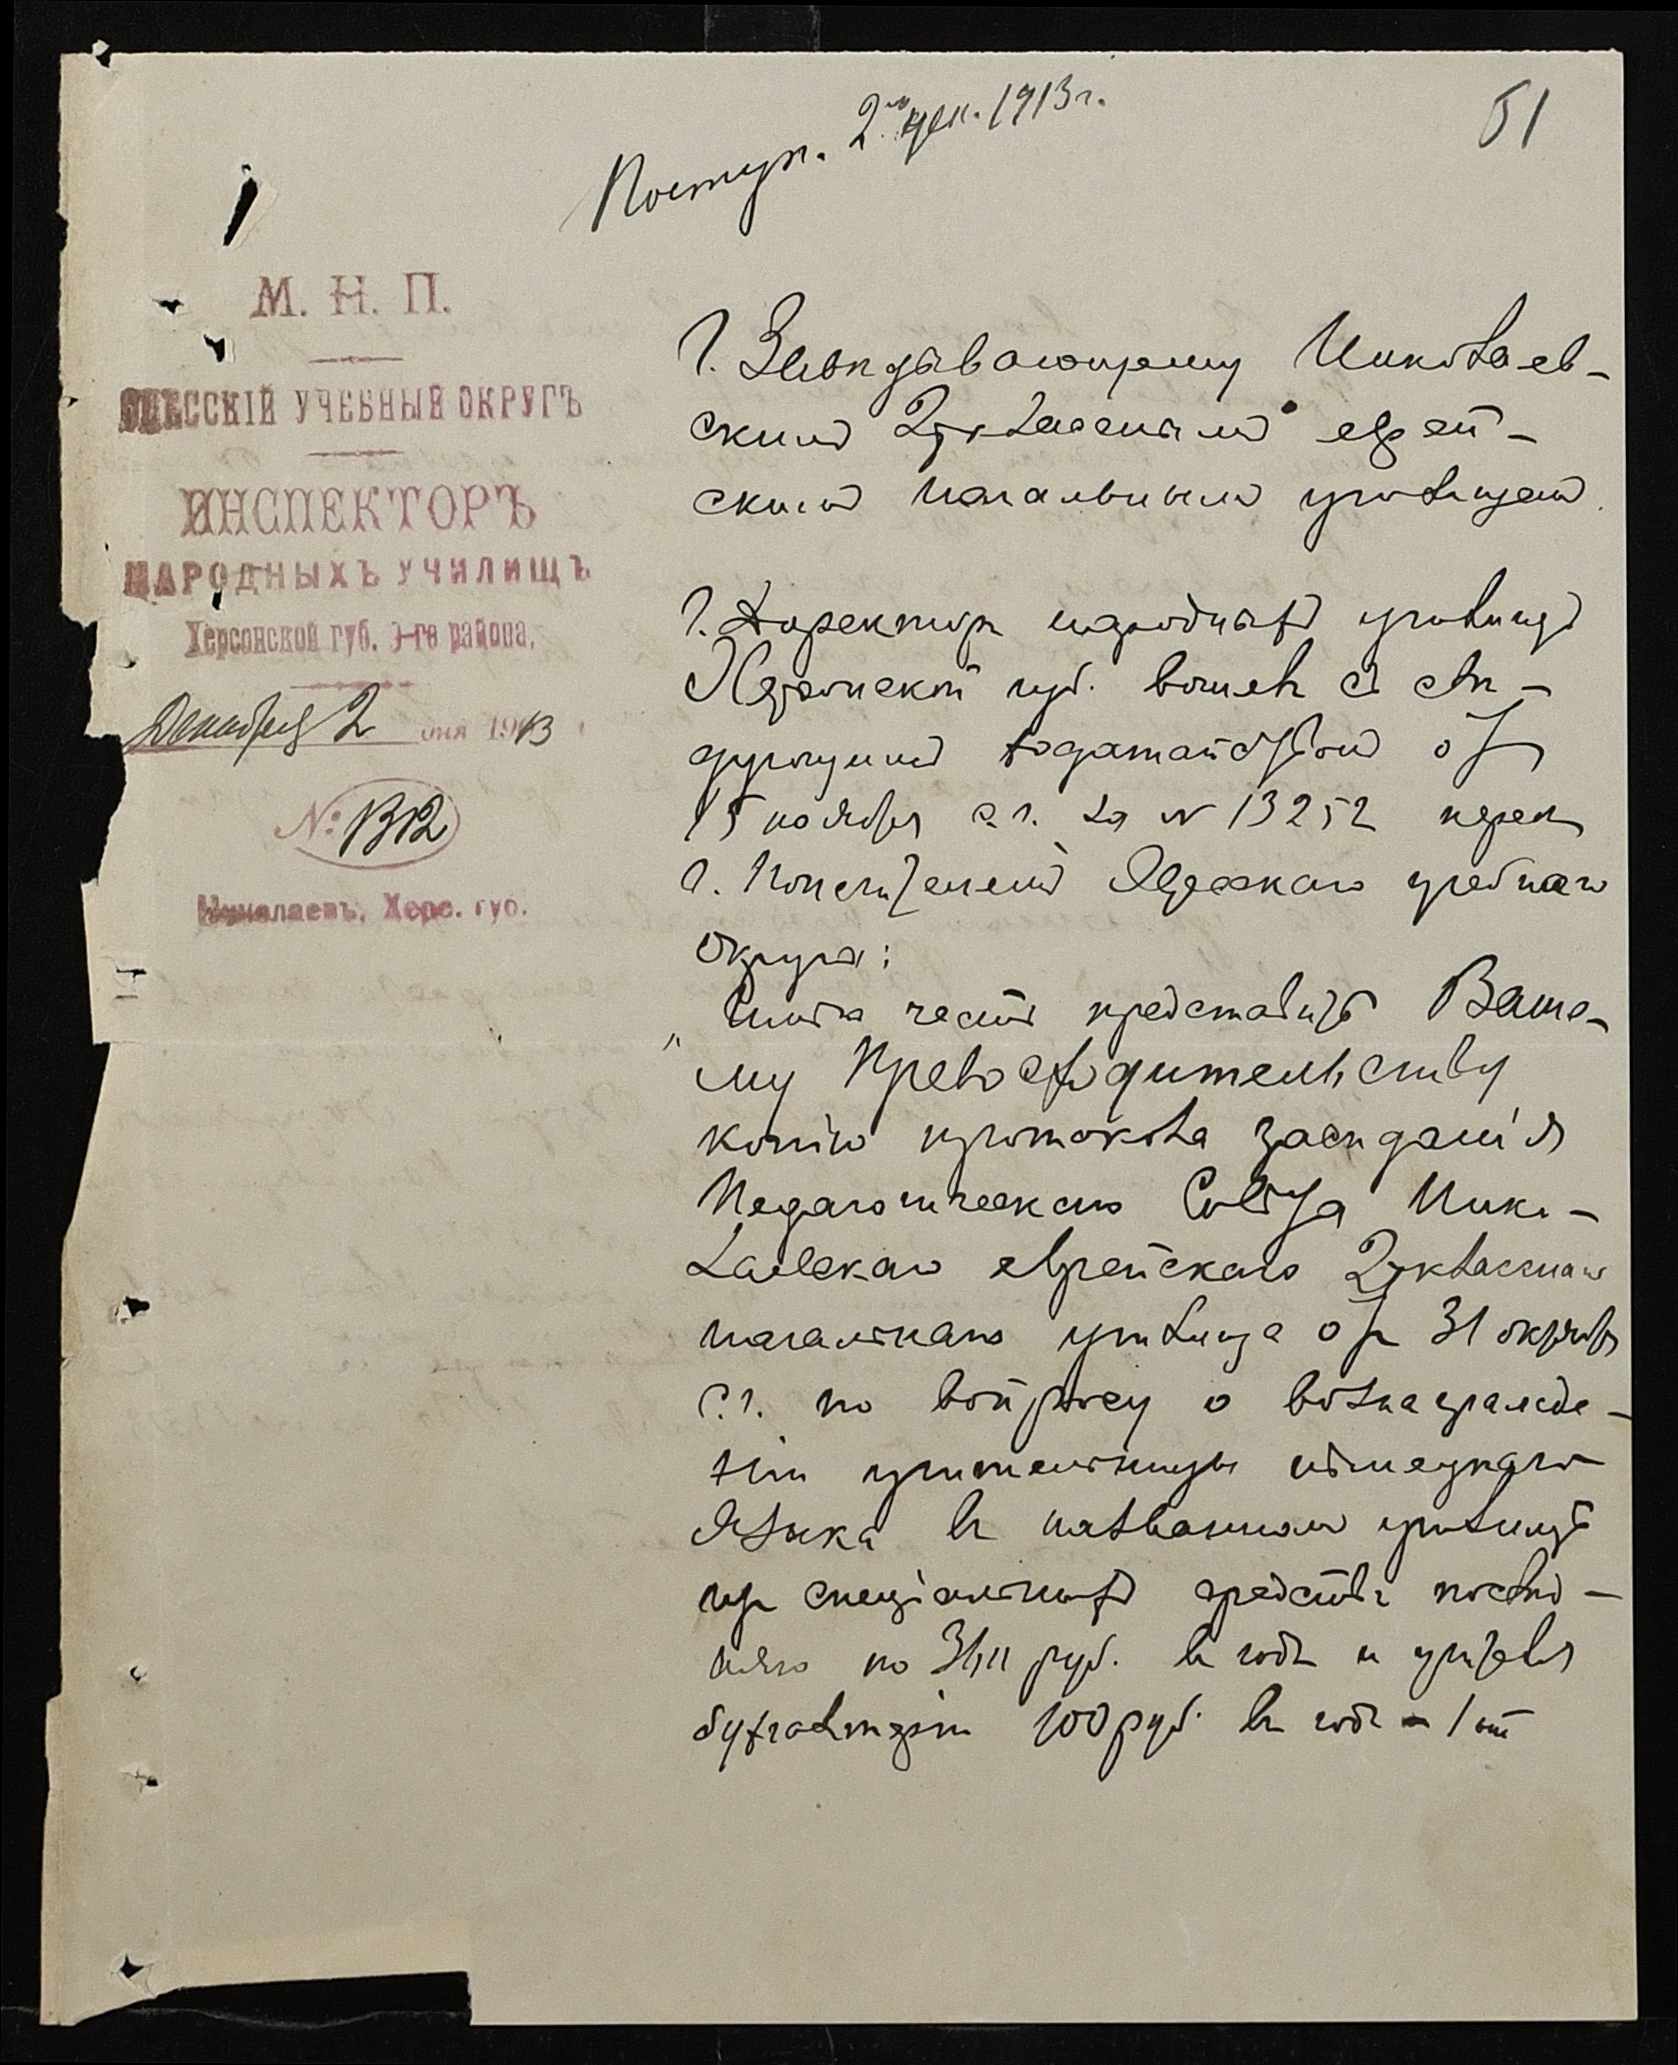 Поступ. 2го дек. 1913 г.
51
М. Н. П.
ОДЕССКІЙ УЧЕБНЫЙ ОКРУГЪ
ИНСПЕКТОРЪ
НАРОДНЫХЪ УЧИЛИЩЪ
Херсонской губ. 3-го района.
Декабря 2 дня 1913
№: 1312
Николаевъ, Херс. губ.
Г. Завѣдывающему Николаев-
скимъ 2хкласснымъ еврей-
скимъ начальнымъ училищемъ
Г. Директоръ народныхъ училищъ
Херсонской губ. вошелъ съ слѣ-
дующимъ ходатайствомъ отъ
15 ноября с. г. за № 13252 передъ
г. Попечителемъ Одесскаго учебнаго
округа:
„Имѣю честь представить Ваше-
му Превосходительству
копію протокола засѣданія
Педагогическаго Совѣта Нико-
лаевскаго еврейскаго 2хкласснаго
начальнаго училища отъ 31 октября
с. г. по вопросу о вознагражде-
ніи учительницы нѣмецкаго
языка въ названномъ училищѣ
изъ спеціальныхъ средствъ послѣд-
няго по руб. въ годъ и учителя
бухгалтеріи 100 руб. въ годъ –